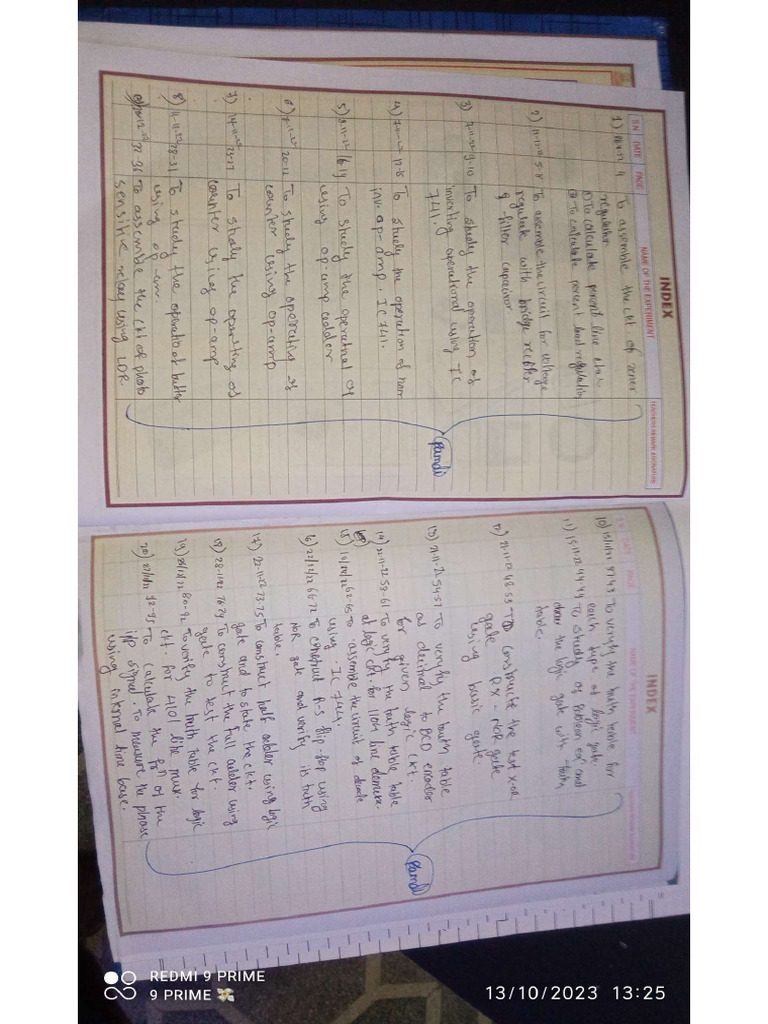 INDEX
S.N. DATE PAGE NAME OF THE EXPERIMENT
1) 4 To assemble the ckt of zener
regulator
① To calculate line
② To calculate percent load regulation
2) 11-11-22 5-8 To assemble the circuit for voltage
regulate with bridge
& filler capacitor
3) 7-11-22 9-10 To study the operation of
inverting operational using IC
741.
4) To study the operation of non
inv. op-amp. IC 741.
5) 16-19 To study the operational of
using op-amp adder
6) 20-22 To study the operating of
counter using op-amp
7) 23-27 To study the operating of
counter using op-amp
8) 11-11-22 28-31 To study the operation of
using op-am.
32-36 To assemble the ckt of photo
sensitive relay using LDR
Pamdi
INDEX
S.N. DATE PAGE NAME OF THE EXPERIMENT
10) To verify the truth table for
each type of logic gate.
11) 15-11-22 44-47 To study of and
draw the logic gate with truth
table.
12) 21-11-22 48-53 constructe the test x-or
gate & x-nor gate
using basic gate
13) 21-11-22 54-57 To verify the truth table
as decimal to BCD encoder
for given logic ckt.
14) 22-11-22 58-61 To verify the truth table table
of logic ckt. for line
15) 62-65 To assemble the circuit of decade
using IC 744.
16) 66-72 To construct R-S flip-flop using
NOR gate and verify its truth
table.
17) 22-11-22 73-75 To construct half adder using logic
gate and to state the ckt.
18) 28-11-22 76-79 To construct the full adder using
gate to test the ckt.
19) 80-92 To verify the truth table for logic
ckt. for 4101 like mux.
20) 92-95 To calculate the of the
i/p signal. To measure the phase
using internal time base.
Pamdi
REDMI 9 PRIME
9 PRIME 💸
13/10/2023 13:25